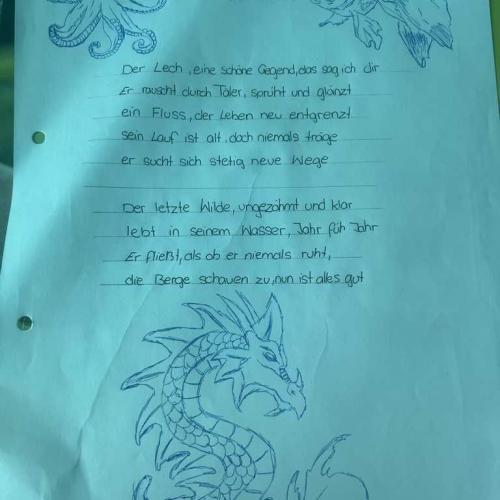 Der Lech, eine schöne Gegend, das sag ich dir
Er rauscht durch Täler, sprüht und glänzt
ein Fluss, der Leben neu entgrenzt
sein Lauf ist alt, doch niemals träge
er sucht sich stetig neue Wege
Der letzte Wilde, ungezähmt und klar
lebt in seinem Wasser, Jahr füh Jahr
Er fließt, als ob er niemals ruht,
die Berge schauen zu, nun ist alles gut